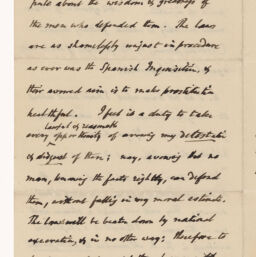 about the wisdom & greatness of
the men who defended them. The laws
are as shamefully unjust in procedure
as ever was the Spanish Inquisition, &
their avowed aim is to make prostitution
healthful. I feel it a duty to take
lawful & reasonable
every opportunity of avowing my detestation
& disgust of them; nay, avowing that no
man, knowing the facts rightly, can defend
them, without falling in my moral estimate.
The Laws will be beaten down by national
execration, & in no other way; therefore to